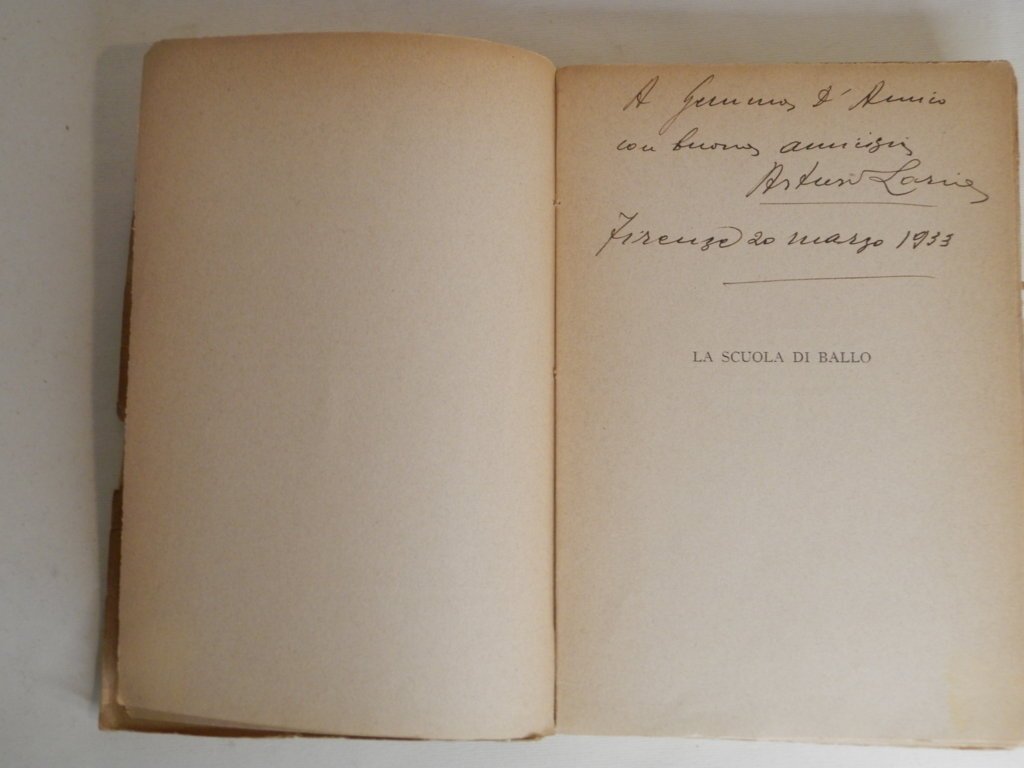 A Gemma d'Amico
con buona amicizia
Arturo Loria
Firenze 20 marzo 1933
LA SCUOLA DI BALLO